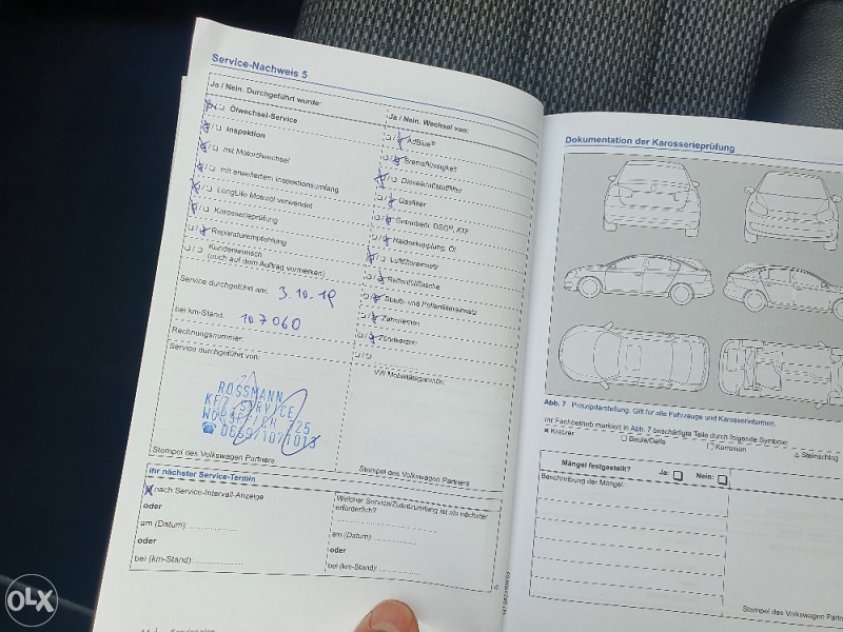 Service-Nachweis 5
Ja / Nein. Durchgeführt wurde:
Ölwechsel-Service
Inspektion
mit Motorölwechsel
mit erweitertem Inspektionsumfang
LongLife Motoröl verwendet
Karosserieprüfung
Reparaturempfehlung
Kundenwunsch
(auch auf dem Auftrag vormerken)
Service durchgeführt am: 3.10.19
bei km-Stand: 107060
Rechnungsnummer:
Service durchgeführt von:
ROSSMANN
KFZ SERVICE
225
Stempel des Volkswagen Partners
Ja / Nein. Wechsel von:
AdBlue®
Bremsflüssigkeit
Dieselkraftstofffilter
Gasfilter
Getriebeöl, DSG®, ATF
Haldexkupplung, Öl
Luftfiltereinsatz
Reifenfüllflasche
Staub- und Pollenfiltereinsatz
Zahnriemen
Zündkerzen
VW Mobilitätsgarantie:
Stempel des Volkswagen Partners
Ihr nächster Service-Termin
nach Service-Intervall-Anzeige
oder
am (Datum):
oder
bei (km-Stand):
Welcher Service/Zusatzumfang ist als nächster
erforderlich?
am (Datum)
oder
bei (km-Stand):
Dokumentation der Karosserieprüfung
Abb. 7 Prinzipdarstellung. Gilt für alle Fahrzeuge und Karosserieformen.
Ihr Fachbetrieb markiert in Abb. 7 beschädigte Teile durch folgende Symbole:
× Kratzer
Beule/Delle
Korrosion
Steinschlag
Mängel festgestellt? Ja: Nein:
Beschreibung der Mängel:
Stempel des Volkswagen Partners
OLX